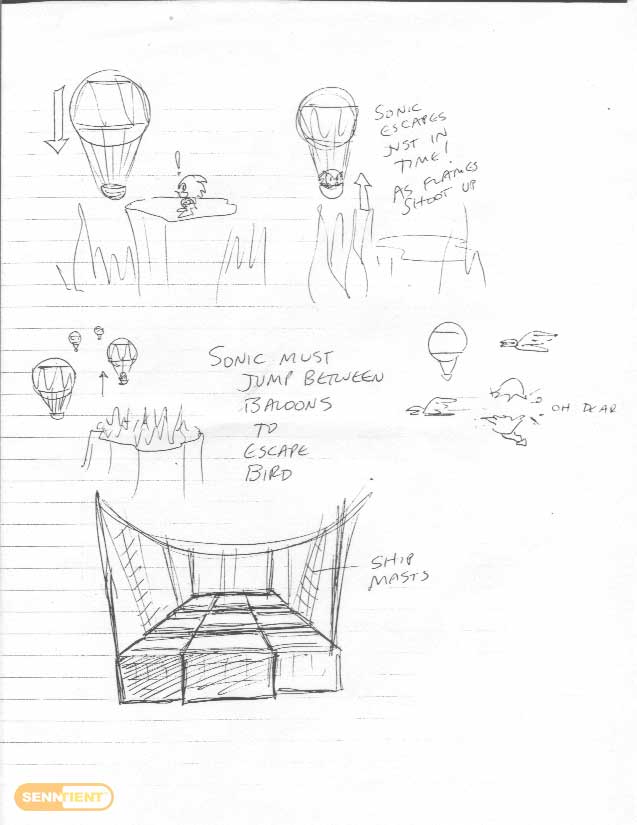 !
SONIC
ESCAPES
JUST IN
TIME!
AS FLAMES
SHOOT UP
SONIC MUST
JUMP BETWEEN
BALOONS
TO
ESCAPE
BIRD
OH DEAR
SHIP
MASTS
SENNTIENT